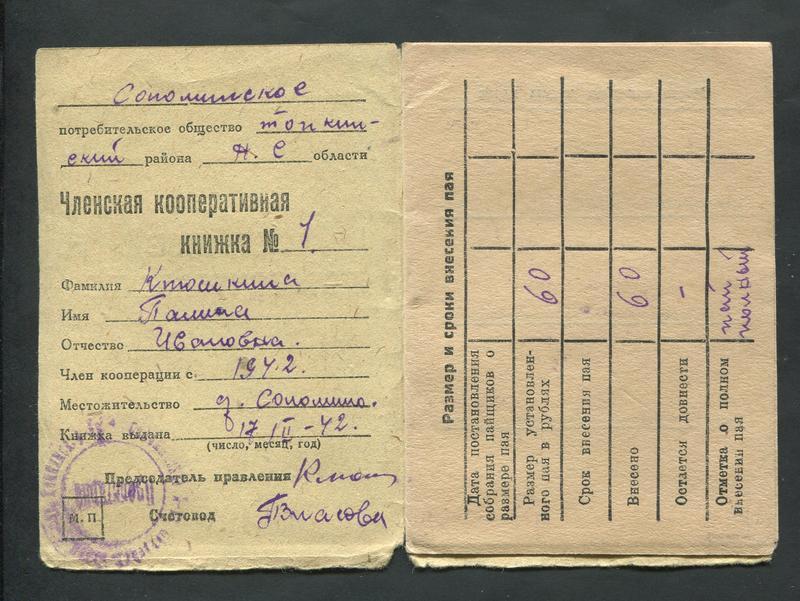 Сополинское
потребительское общество топкин-
ский района Н.С области
Членская кооперативная
книжка № 1
Фамилия
Имя
Отчество Ивановна.
Член кооперации с 1942.
Местожительство д.
Книжка выдана 17/II-42.
(число, месяц, год)
Председатель правления
М.П Счетовод Власова
Размер и сроки внесения пая
Дата постановления
собрания пайщиков о
размере пая
Размер установлен-
ного пая в рублях 60
Срок внесения пая
Внесено 60
Остается довнести -
Отметка о полном
внесении пая
пай
полный